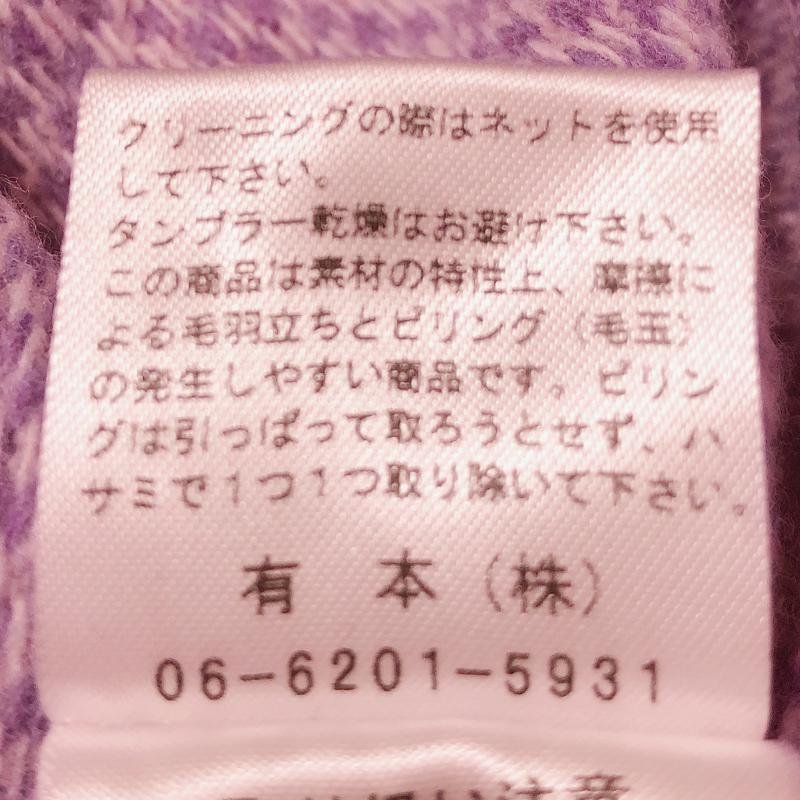 クリーニングの際はネットを使用
して下さい。
タンブラー乾燥はお避け下さい。
この商品は素材の特性上、摩擦に
よる毛羽立ちとピリング（毛玉）
の発生しやすい商品です。ピリン
グは引っぱって取ろうとせず、ハ
サミで1つ1つ取り除いて下さい。
有 本（株）
06-6201-5931